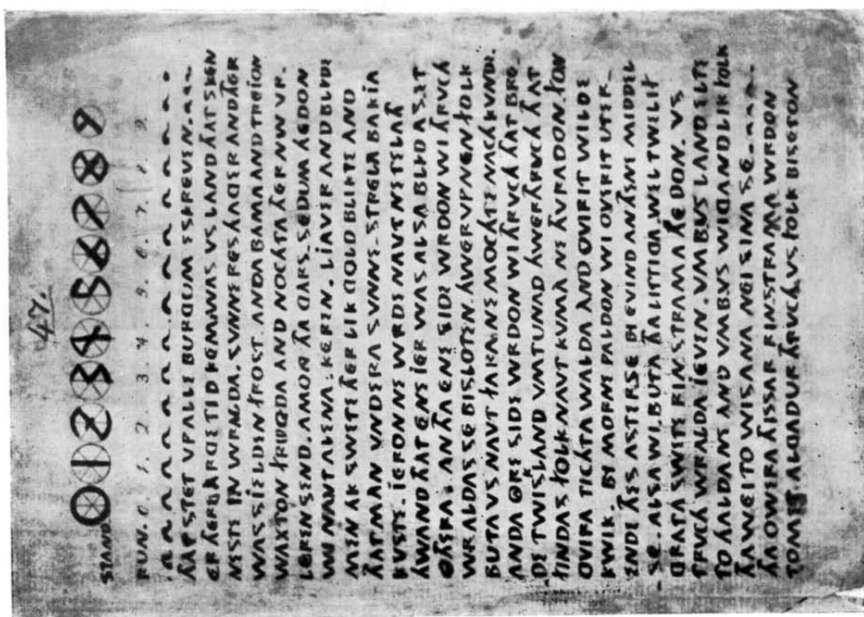 47.
STAND. 0 1 2 3 4 5 6 7 8 9
RUN. 0. 1. 2. 3. 4. 5. 6. 7. 8. 9.
THIT STET VP ALLE BURGUM ESKREVEN.
ER THERE ARGE TID KEM. WAS VS LAND THAT SKEN
NESTE IN WRALDA. SVNNE RES HAGER AND THER
WAS SIELDEN FROST. ANDA BAMA AND TREION
WAXTON FRUGDA AND NOCHTA THER NW VR.
LEREN SEND. AMONG THA GARS. SEDUM HEDON
WI NAVT ALENA. KEREN. LIAVER AND BLIDE
MEN AK SWETE THER LIK GOLD BLIKTE AND
THAT MAN VNDERA SVNNE. STRELA BAKIA
KVSTE. IERON NE WRDE NAVT NE TELATH
HWAND THAT ENE IER WAS ALSA BLID AS ET
OTHERA. AN THA ENE SIDE WRDON WI THRVCH
WRALDAS SE BISLOTEN. HWERVP NEN FOLK
BUTA VS NAVT FARA NE MOCHTE NACH KVNDE.
ANDA ORE SIDE WRDON WI THRVCH THAT BRE.
DE TWISKLAND VMTUNAD HWER THRVCH THAT
FINDAS FOLK NAVT KVMA NE THVRADON. FON
OVIRA TICHTA WALDA AND OVIR IT WILDE
KWIK. BI MORNE PALDON WI OVIR IT UTER.
ENDE THES ASTERSE. BI EVIND AN THENE MIDDEL
SE. ALSA WI BUTA THA LITTIGA WEL TWELIF
GRATA SWETE RINSTRAMA HEDON. VS
THRVCH WRALDA IEVEN. VMB VS LAND ELTE
TO HALDANE AND VMB VS WIGANDLIK FOLK
THA WEI TO WISANA NEI SINA SE.
THA OWERA THISSAR RINSTRAMA WRDON
TOMET ALGADUR THRVCH VS FOLK BISETON